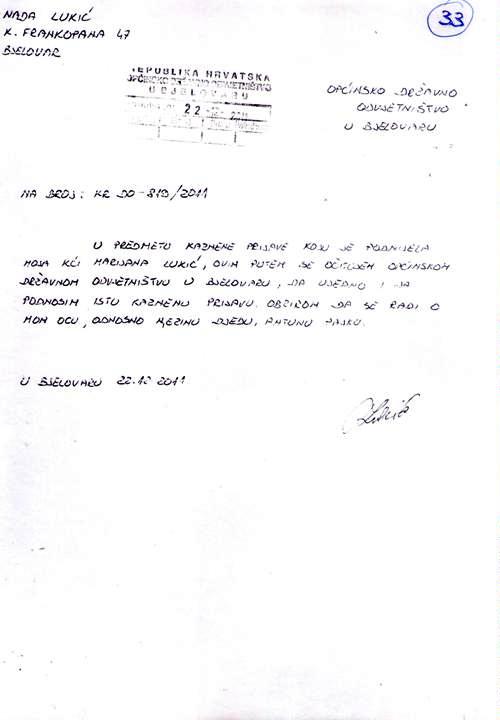 NADA LUKIĆ
K. FRANKOPANA 47
BJELOVAR
33
REPUBLIKA HRVATSKA
OPĆINSKO DRŽAVNO ODVJETNIŠTVO
U BJELOVARU
22
2011
OPĆINSKO DRŽAVNO
ODVJETNIŠTVO
U BJELOVARU
NA BROJ: KR DO-819/2011
U PREDMETU KAZNENE PRIJAVE KOJU JE PODNIJELA
MOJA KĆI MARIJANA LUKIĆ, OVIM PUTEM SE OČITUJEM OPĆINSKOM
DRŽAVNOM ODVJETNIŠTVU U BJELOVARU, DA UJEDNO I JA
PODNOSIM ISTU KAZNENU PRIJAVU. OBZIROM DA SE RADI O
MOM OCU, ODNOSNO NJEZINU DJEDU, ANTUNU
U BJELOVARU 22.12 2011